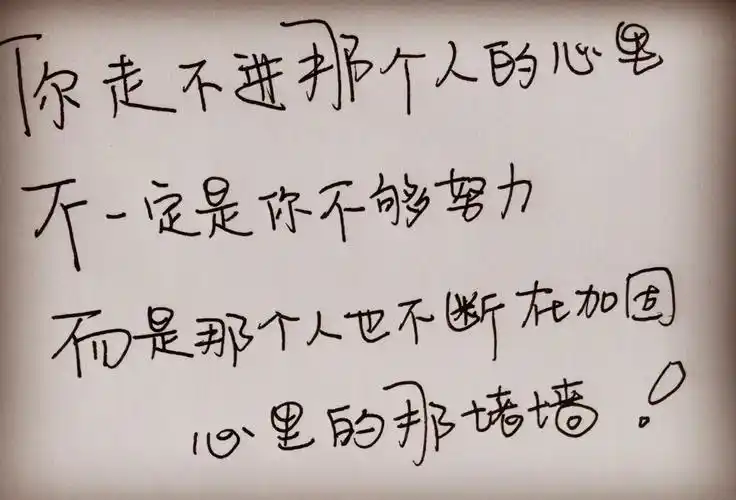 你走不进那个人的心里
不一定是你不够努力
而是那个人也不断在加固
心里的那堵墙！